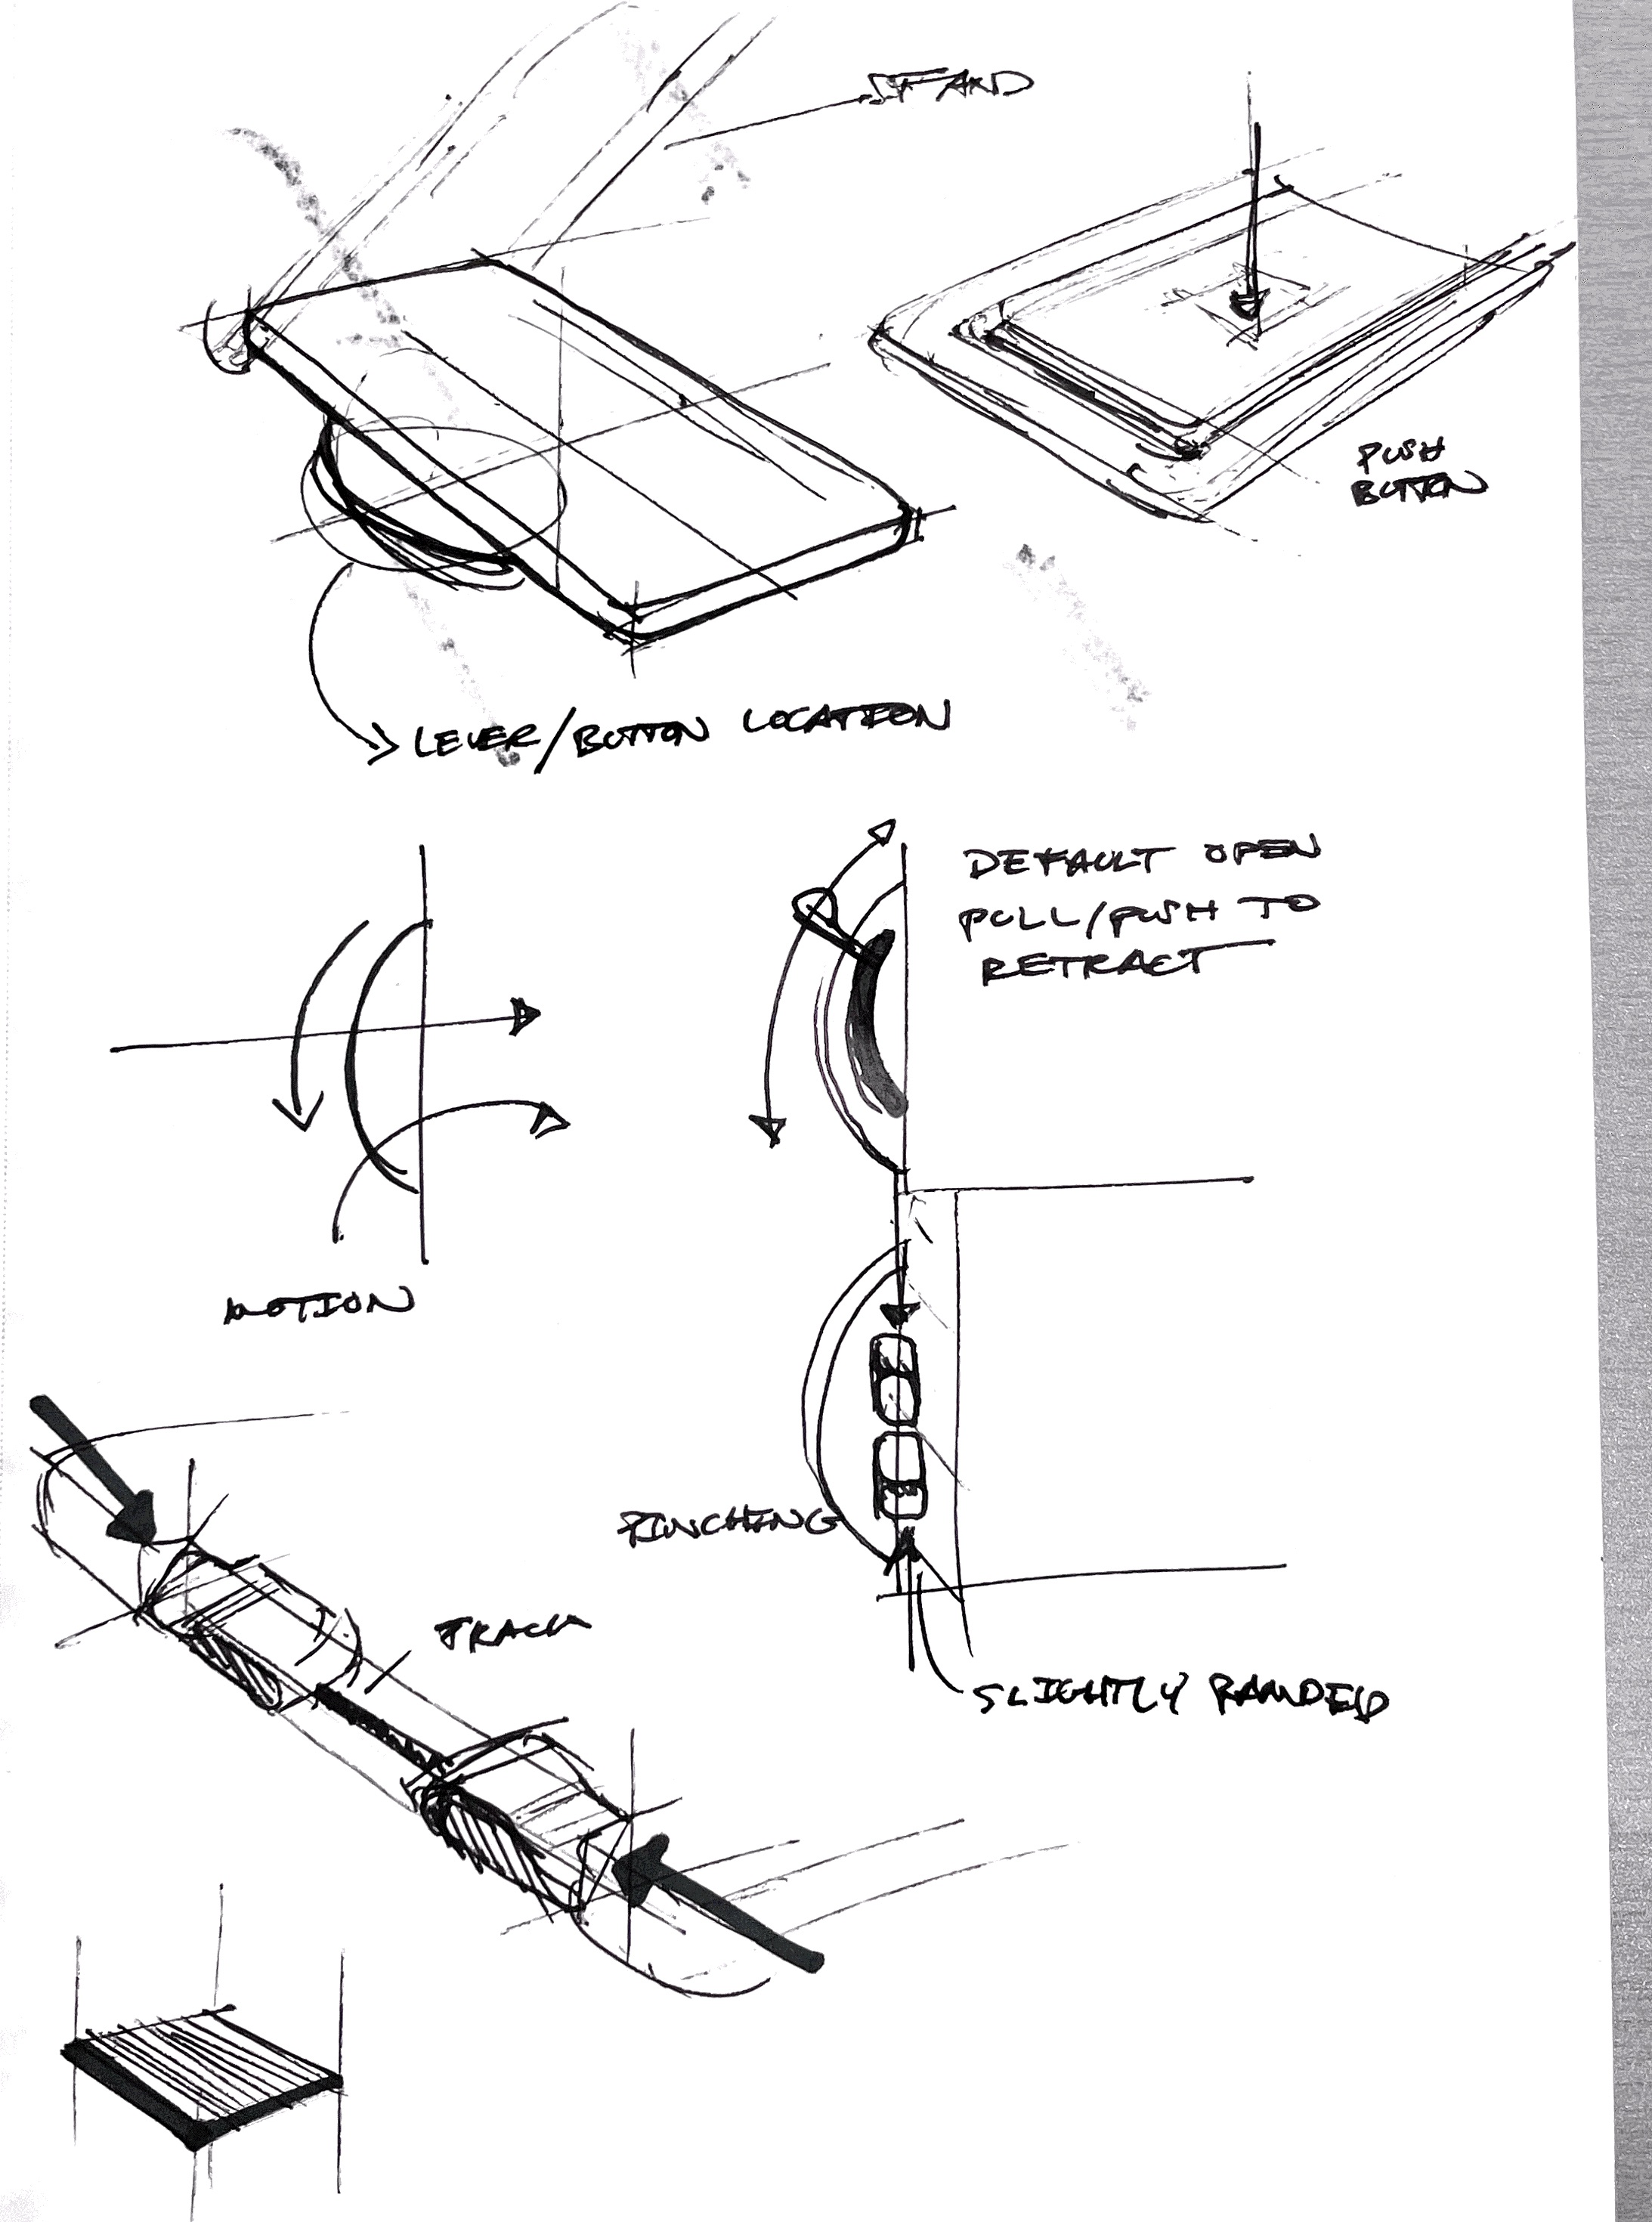 STAND
PUSH
BUTTON
LEVER/BUTTON LOCATION
DEFAULT OPEN
PULL/PUSH TO
RETRACT
MOTION
PINCHING
TRACK
SLIGHTLY